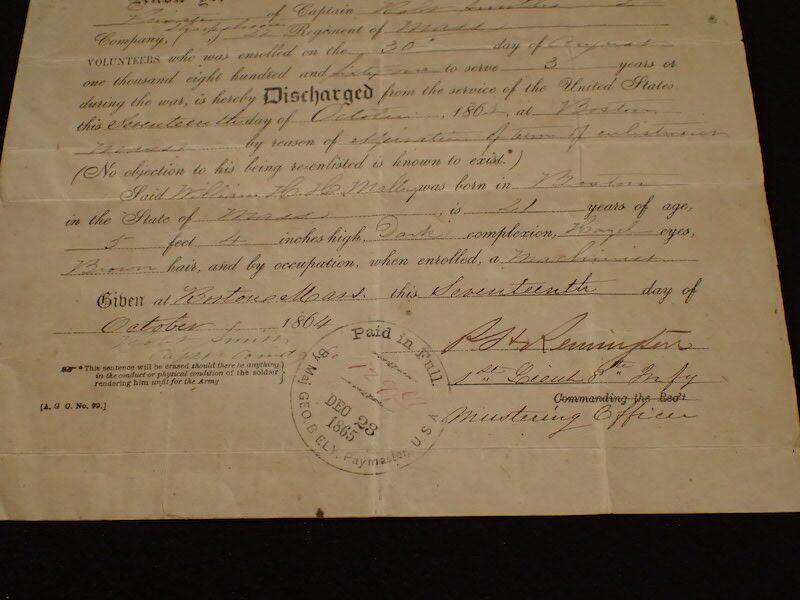 of Captain Smith's
Company, ( 22 Regiment of Mass
VOLUNTEERS who was enrolled on the 30" day of August
one thousand eight hundred and sixty one to serve 3 years or
during the war, is hereby Discharged from the service of the United States
this Seventeenth day of October, 1864, at Boston
Mass by reason of expiration of term of enlistment
(No objection to his being re-enlisted is known to exist.*)
Said William H. H. was born in Boston
in the State of Mass, is 21 years of age,
5 feet 4 inches high, Dark complexion, Hazel eyes,
Brown hair, and by occupation, when enrolled, a Machinist
Given at Boston Mass. this Seventeenth day of
October 1864
Smith
Capt Comdg Co
*This sentence will be erased should there be anything
in the conduct or physical condition of the soldier
rendering him unfit for the Army
[A. G. O. No. 99.]
Paid in Full
By Maj GEO. B ELY, Paymaster, U S A
DEC 23
1865
R H Remington
1st Lieut 8th Infy
Commanding the Reg't
Mustering Officer